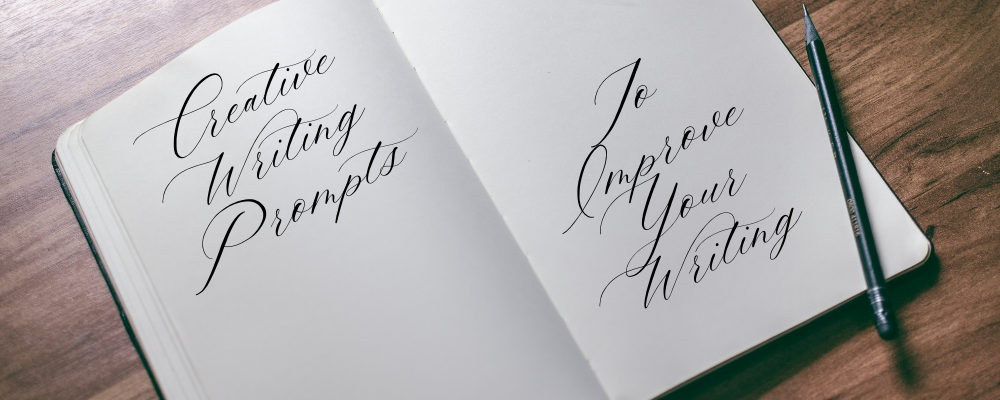 Creative
Writing
Prompts
To
Improve
Your
Writing